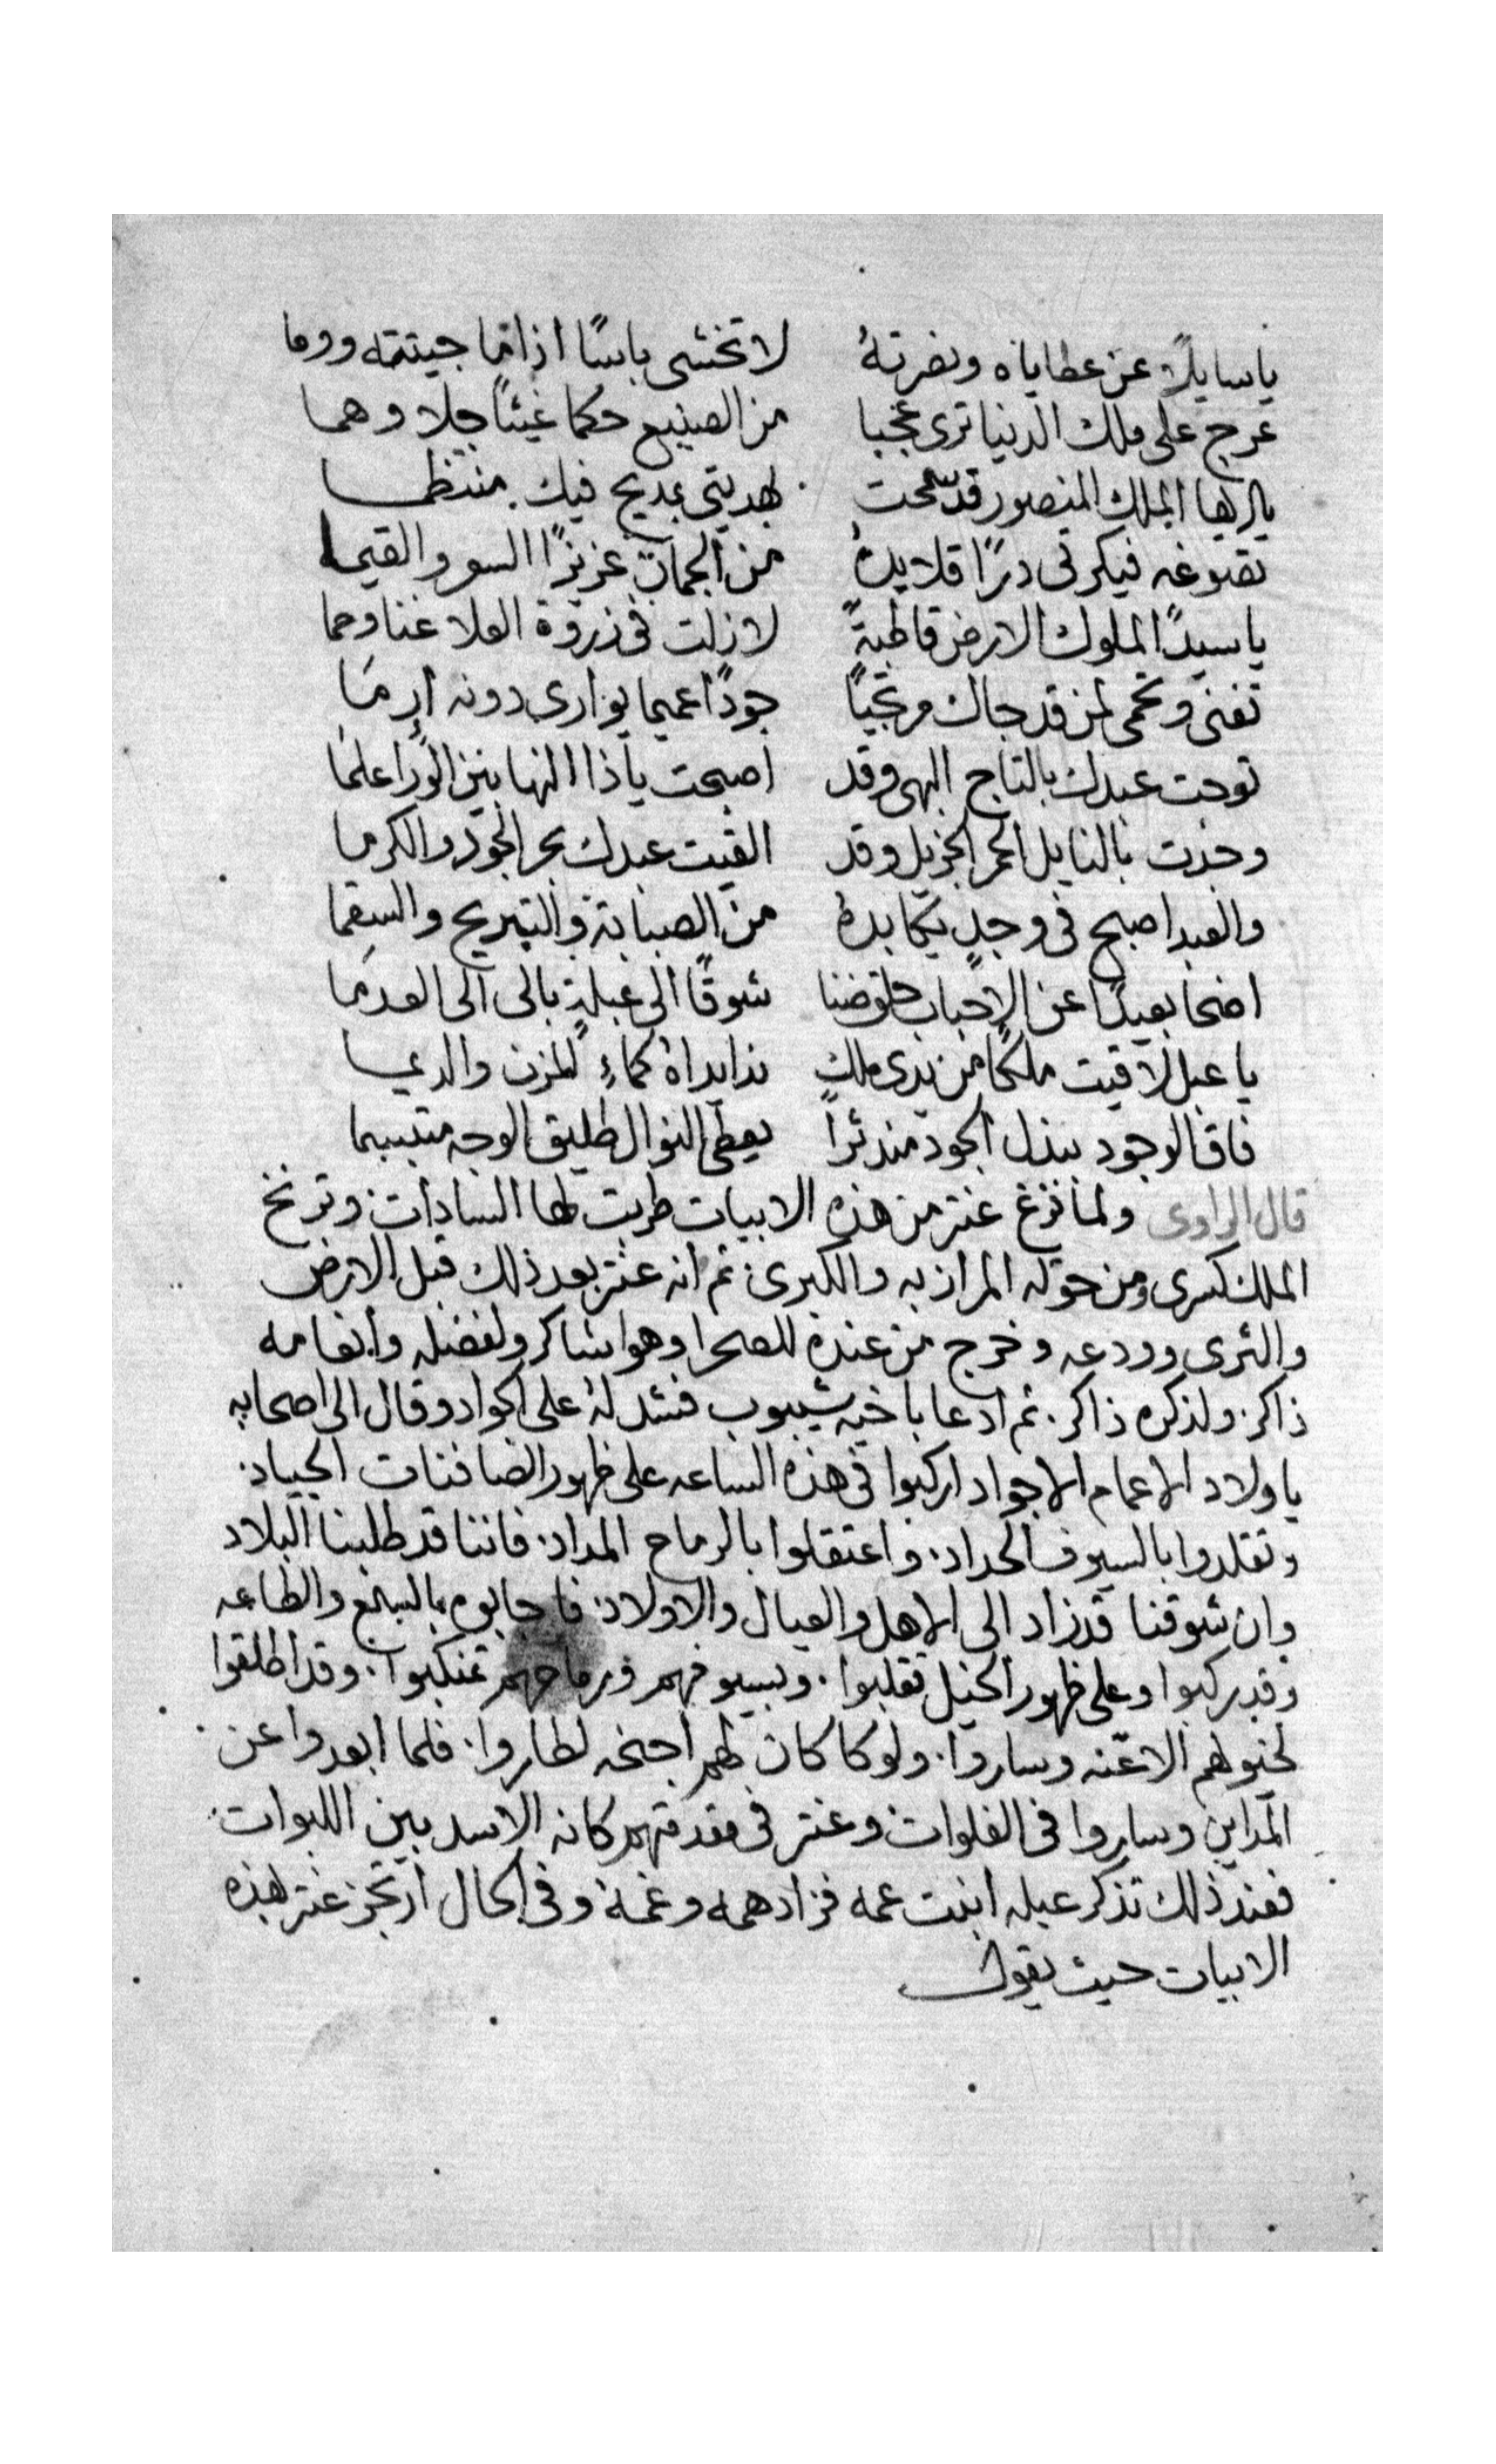 يا سايلًا عن عطاياه ونصرتهُ لا تخشى باسًا اذا ما جيتته ووما
عرج على ملك الدنيا ترى عجبا من الصنيع حكما غيثًا جلا وهما
يا ايها الملك المنصور قد سمحت لهديتي بمديح فيك منتظما
تصوغه فيكرتى درًا قلايدهُ من الجمان عزيزًا السور والقيما
يا سيدًا الملوك الارض قاطبةً لا زلت فى زروة العلا غنا وحما
تغنى وتحمى لمن قد جاك مرتجيًا جودًا عميما يوارى دونه اِرمَا
توجت عبدك بالتاج البهى وقد اصبحت ياذا النها بين الورا علما
وجدت بالنايل الجم الجزيل وقد القيت عبدك بحر الجود والكرما
والعبد اصبح فى وجدٍ يكابدهُ من الصبابة والتبريح والسقما
اضحا بعيدًا عن الاحباب حلو ضنا شوقًا الى عبلةٍ بالى الى العدمَا
يا عبل لاقيت ملكًا من يدى ملكٍ ندا يداهُ كماءِ المزن والديما
فاق الوجود ببذل الجود مندثرًا يعطى النوال طليق الوجه متبسما
قال الراوى ولما فرغ عنتر من هذه الابيات طربت لها السادات وترنح
الملك كسرى ومن حوله المرازبه والكبرى ثم انه عنتر بعد ذلك قبل الارض
والثرى وودعه وخرج من عنده للصحرا وهوا شاكر ولفضله وانعامه
ذاكر ولذكره ذاكر ثم ادعا باخيه شيبوب فشد لهُ على الجواد وقال الى اصحابه
يا ولاد الاعمام الاجواد اركبوا فى هذه الساعه على ظهور الصافنات الجياد
وتقلدوا بالسيوف الحداد واعتقلوا بالرماح المداد فاننا قد طلبنا البلاد
وان شوقنا قد زاد الى الاهل والعيال والاولاد فاجابوه بالسمع والطاعه
وقد ركبوا وعلى ظهور الخيل تقلبوا وبسيوفهم ورماحهم تمنكبوا وقد اطلقوا
لخيولهم الاعنه وساروا ولو كا كان لهم اجنحه لطاروا فلما ابعدوا عن
المداين وساروا فى الفلوات وعنتر فى مقدمتهم كانه الاسد بين اللبوات
فعند ذلك تذكر عبله ابنت عمه فزاد همه وغمهُ وفى الحال ارتجز عنتر بهذه
الابيات حيث يقول